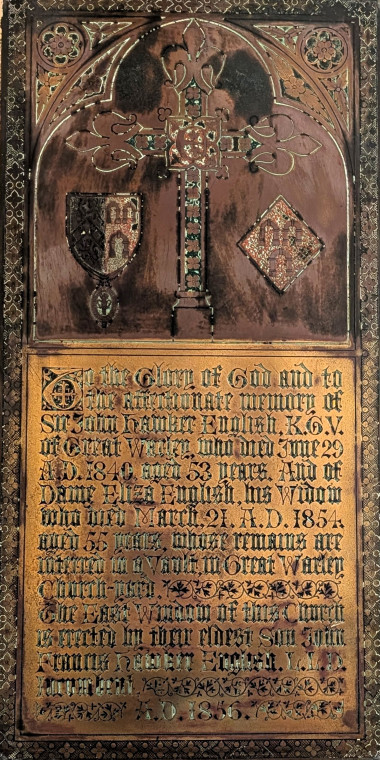 To the Glory of God and to
the affectionate memory of
Sir John Hawker English, K.G.V.
of Great Warley, who died June 29
A.D. 1840, aged 53 years. And of
Dame Eliza English, his Widow
who died March. 21. A.D. 1854.
aged 55 years, whose remains are
interred in a Vault, in Great Warley
Church-yard.
The East Window of this Church
is erected by their eldest Son John
Francis Hawker English, L.L.D.
A.D. 1856.